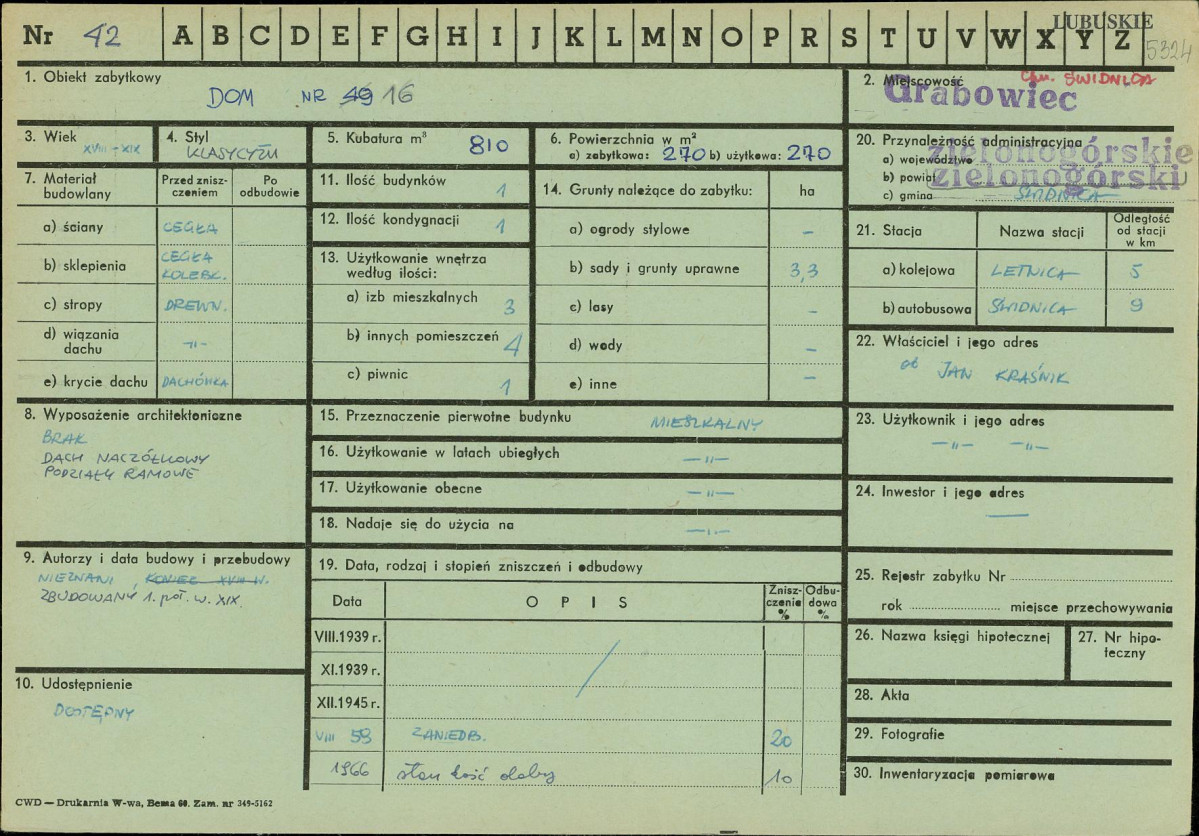 LUBUSKIE
Nr 42 A B C D E F G H I J K L M N O P R S T U V W X Y Z
5324
1. Obiekt zabytkowy
DOM NR 49 16
2. Miejscowość
gm. ŚWIDNICA
Grabowiec
3. Wiek
XVIII-XIX
4. Styl
KLASYCYZM
5. Kubatura m³ 810
6. Powierzchnia w m²
a) zabytkowa: 270 b) użytkowa: 270
20. Przynależność administracyjna
a) województwo zielonogórskie
b) powiat zielonogórski
c) gmina ŚWIDNICA
7. Materiał budowlany
Przed zniszczeniem
Po odbudowie
a) ściany CEGŁA
b) sklepienia CEGŁA KOLEBK.
c) stropy DREWN.
d) wiązania dachu -"-
e) krycie dachu DACHÓWKA
11. Ilość budynków 1
12. Ilość kondygnacji 1
13. Użytkowanie wnętrza według ilości:
a) izb mieszkalnych 3
b) innych pomieszczeń 4
c) piwnic 1
14. Grunty należące do zabytku: ha
a) ogrody stylowe -
b) sady i grunty uprawne 3,3
c) lasy -
d) wody -
e) inne -
21. Stacja
Nazwa stacji
Odległość od stacji w km
a) kolejowa LETNICA 5
b) autobusowa ŚWIDNICA 9
22. Właściciel i jego adres
ob JAN KRAŚNIK
8. Wyposażenie architektoniczne
BRAK
DACH NACZÓŁKOWY
PODZIAŁY RAMOWE
15. Przeznaczenie pierwotne budynku MIESZKALNY
16. Użytkowanie w latach ubiegłych -"-
17. Użytkowanie obecne -"-
18. Nadaje się do użycia na -"-
23. Użytkownik i jego adres
-"- -"-
24. Inwestor i jego adres
—
9. Autorzy i data budowy i przebudowy
NIEZNANI, KONIEC XVIII W.
ZBUDOWANY 1. poł. w. XIX.
10. Udostępnienie
DOSTĘPNY
19. Data, rodzaj i stopień zniszczeń i odbudowy
Data
OPIS
Zniszczenie %
Odbudowa %
VIII.1939 r.
XI.1939 r.
XII.1945 r.
VIII 59 ZANIEDB. 20
1966 stan dość dobry 10
25. Rejestr zabytku Nr
rok miejsce przechowywania
26. Nazwa księgi hipotecznej
27. Nr hipoteczny
28. Akta
29. Fotografie
30. Inwentaryzacja pomiarowa
CWD — Drukarnia W-wa, Bema 60. Zam. nr 349-5162